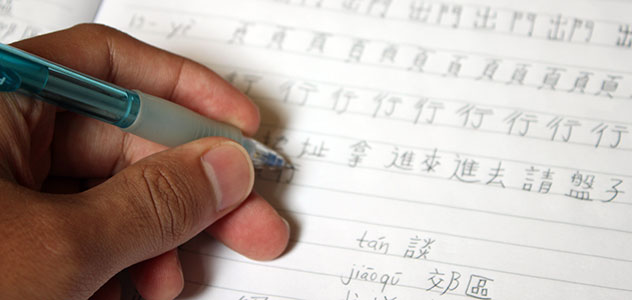 出門 出門 出門 出門 出
yè 頁 頁 頁 頁 頁 頁 頁 頁 頁 頁 頁 頁
行 行 行 行 行 行 行 行 行
址 拿 進來 進去 請 盤子
tán 談
jiāoqū 郊區